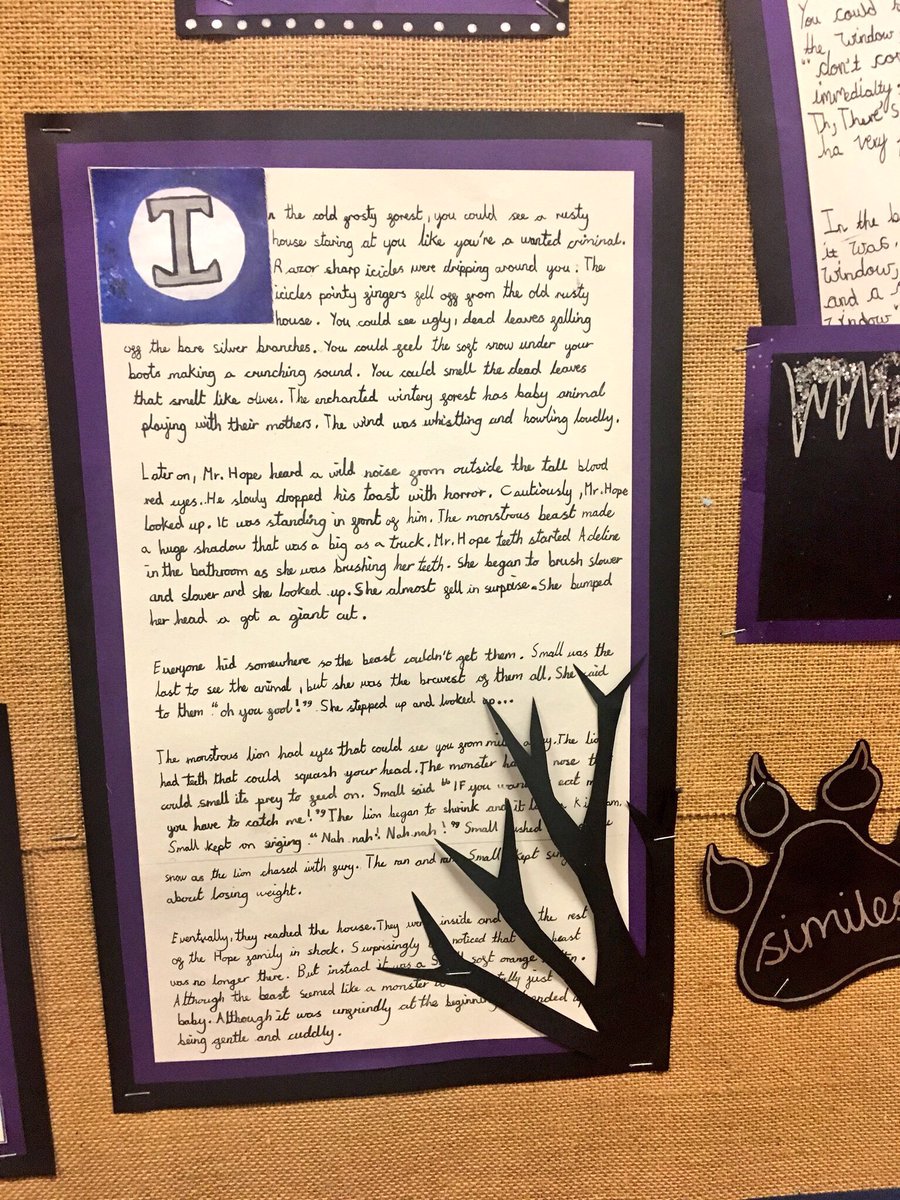 In the cold frosty forest, you could see a rusty
house staring at you like you're a wanted criminal.
Razor sharp icicles were dripping around you. The
icicles pointy fingers fell off from the old rusty
house. You could see ugly, dead leaves falling
off the bare silver branches. You could feel the soft snow under your
boots making a crunching sound. You could smell the dead leaves
that smelt like olives. The enchanted wintery forest has baby animal
playing with their mothers. The wind was whistling and howling loudly.
Later on, Mr. Hope heard a wild noise from outside the tall blood
red eyes. He slowly dropped his toast with horror. Cautiously, Mr. Hope
looked up. It was standing in front of him. The monstrous beast made
a huge shadow that was a big as a truck. Mr. Hope teeth started Adeline
in the bathroom as she was brushing her teeth. She began to brush slower
and slower and she looked up. She almost fell in surprise. She bumped
her head a got a giant cut.
Everyone hid somewhere so the beast couldn't get them. Small was the
last to see the animal, but she was the bravest of them all. She said
to them "oh you fool!" She stepped up and looked up...
The monstrous lion had eyes that could see you from The
had teeth that could squash your head. The monster nose
could smell its prey to feed on. Small said "IF you eat
you have to catch me!" The lion began to shrink and it
Small kept on singing "Nah nah! Nah nah!" Small
snow as the lion chased with fury. The ran and Small kept
about losing weight.
Eventually, they reached the house. They inside and the rest
of the Hope family in shock. Surprisingly noticed that beast
was no longer there. But instead it was a soft orange
Although the beast seemed like a monster just
baby. Although it was unfriendly at the beginning ended
being gentle and cuddly.
You could
the window
"don't
immediatly
Th, There's
ha very
In the
it was,
window,
and a
window
similes